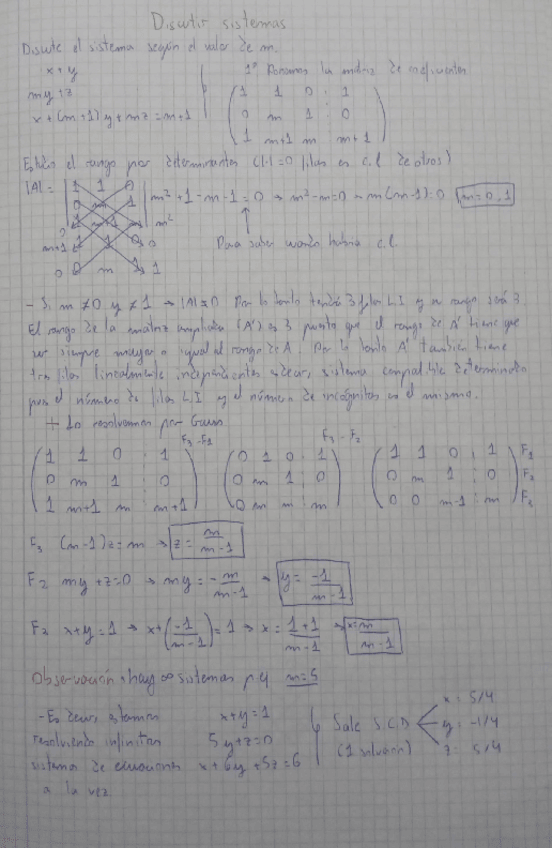 Discutir sistemas
Discute el sistema según el valor de m.
x+y
my+z
x+(m+1)y+mz=m+1
1º Ponemos la matriz de coeficientes
1 1 0 : 1
0 m 1 : 0
1 m+1 m : m+1
Estudio el rango por determinantes (|.|=0 filas es c.l. de otros)
|A| = 1 1 0
0 m 1 m²+1-m-1=0 → m²-m=0 → m(m-1)=0 m=0,1
0 m²
m+1 1 1 0 0
0 0 m 1 1
Para saber cuando habría c.l.
- Si m≠0 y ≠1 → |A|≠0 Por lo tanto tendrá 3 filas L.I y su rango será 3
El rango de la matriz ampliada (A') es 3 puesto que el rango de A' tiene que
ser siempre mayor o igual al rango de A. Por lo tanto A' también tiene
tres filas linealmente independientes, es decir, sistema compatible determinado
pues el número de filas L.I y el número de incógnitas es el mismo.
+ Lo resolvemos por Gauss
F₃-F₁ F₃-F₂
1 1 0 : 1 0 1 0 : 1 1 1 0 : 1 F₁
0 m 1 : 0 0 m 1 : 0 0 m 1 : 0 F₂
1 m+1 m : m+1 0 m m : m 0 0 m-1 : m F₃
F₃ (m-1)z=m → z = m/m-1
F₂ my+z=0 → my = -m/m-1 → y = -1/m-1
F₁ x+y=1 → x+(-1/m-1)=1 → x = 1+1/m-1 → x=m/m-1
Observación: hay ∞ sistemas p.ej m=5
-Es decir, estamos x+y=1
resolviendo infinitas 5y+z=0
sistema de ecuaciones x+6y+5z=6
a la vez
Sale S.C.D
(1 solución)
x = 5/4
y = -1/4
z = 5/4